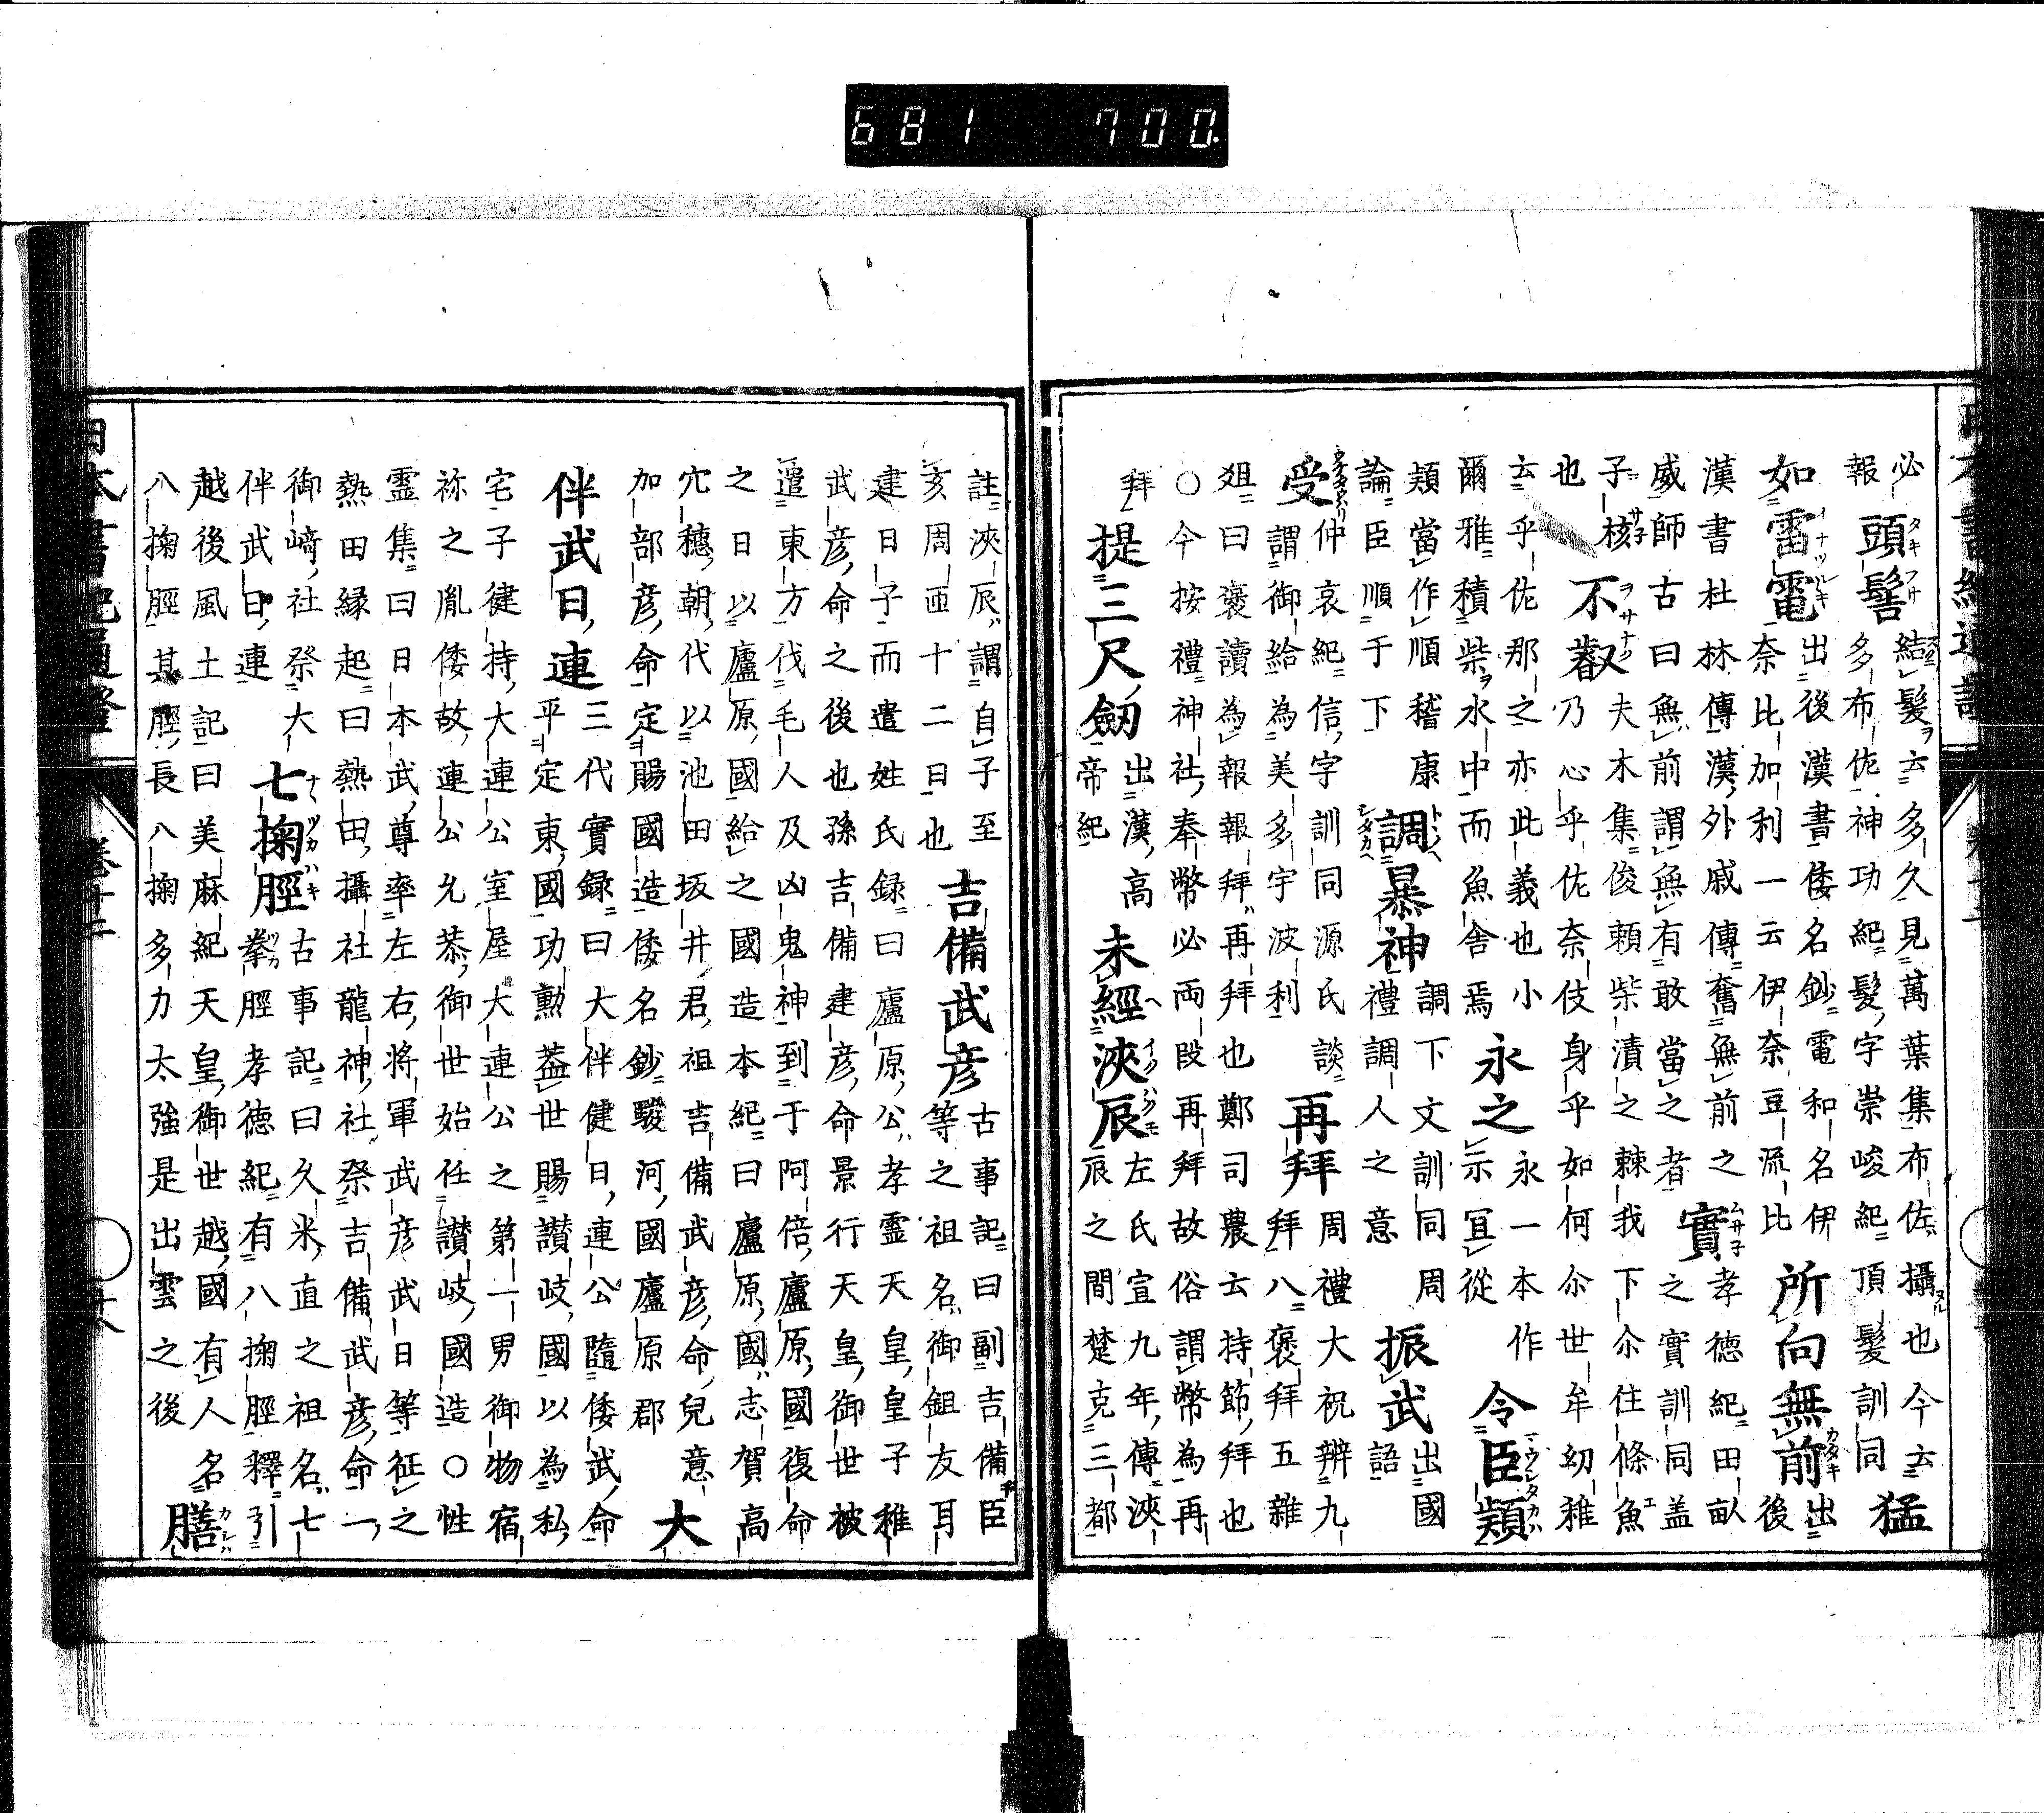 681 700
必報 頭髻 結髮云多久見萬葉集布佐攝也今云
多布佐神功紀髮字崇峻紀頂髮訓同 猛
如雷電 出後漢書倭名鈔電和名伊
奈比加利一云伊奈豆流比 所向無前 出後
漢書杜林傳漢外戚傳奮無前之
威師古曰無前謂無有敢當之者 實 孝德紀田畝
之實訓同蓋
子核 夫木集俊頼柴漬之棘我下尒住條魚
也 不叡 乃心乎佐奈伎身乎如何尒世牟幼稚
云乎佐那之亦此義也小
爾雅積柴水中而魚舍焉 永之 永一本作
示宜從 令臣顙
顙當作順稽康
論臣順于下 調暴神 調下文訓同周
禮調人之意 振武 出國
語
受 仲哀紀信字訓同源氏談
謂御給為美多宇波利 再拜 周禮大祝辨九
拜八褒拜五雜
爼曰褒讀為報報拜再拜也鄭司農云持節拜也
○今按禮神社奉幣必両段再拜故俗謂幣為再
拜 提三尺劒 出漢高
帝紀 未經浹辰 左氏宣九年傳浹
辰之間楚克三都
註浹辰謂自子至
亥周匝十二日也 吉備武彦 古事記曰副吉備臣
等之祖名御鉏友耳
建日子而遣姓氏録曰廬原公孝霊天皇皇子稚
武彦命之後也孫吉備建彦命景行天皇御世被
遣東方伐毛人及凶鬼神到于阿倍廬原國復命
之日以廬原國給之國造本紀曰廬原國志賀高
穴穗朝代以池田坂井君祖吉備武彦命兒意
加部彦命定賜國造倭名鈔駿河國廬原郡 大
伴武日連 三代實録曰大伴健日連公隨倭武命
平定東國功勲葢世賜讃岐國以為私
宅子健持大連公室屋大連公之第一男御物宿
祢之胤倭故連公允恭御世始任讃岐國造○性
霊集曰日本武尊率左右将軍武彦武日等征之
熱田縁起曰熱田攝社龍神社祭吉備武彦命一
御﨑社祭大
伴武日連 七掬脛 古事記曰久米直之祖名七
拳脛孝德紀有八掬脛釋引
越後風土記曰美麻紀天皇御世越國有人名
八掬脛其脛長八掬多力太強是出雲之後 膳
日本書紀通證 卷十二 十八